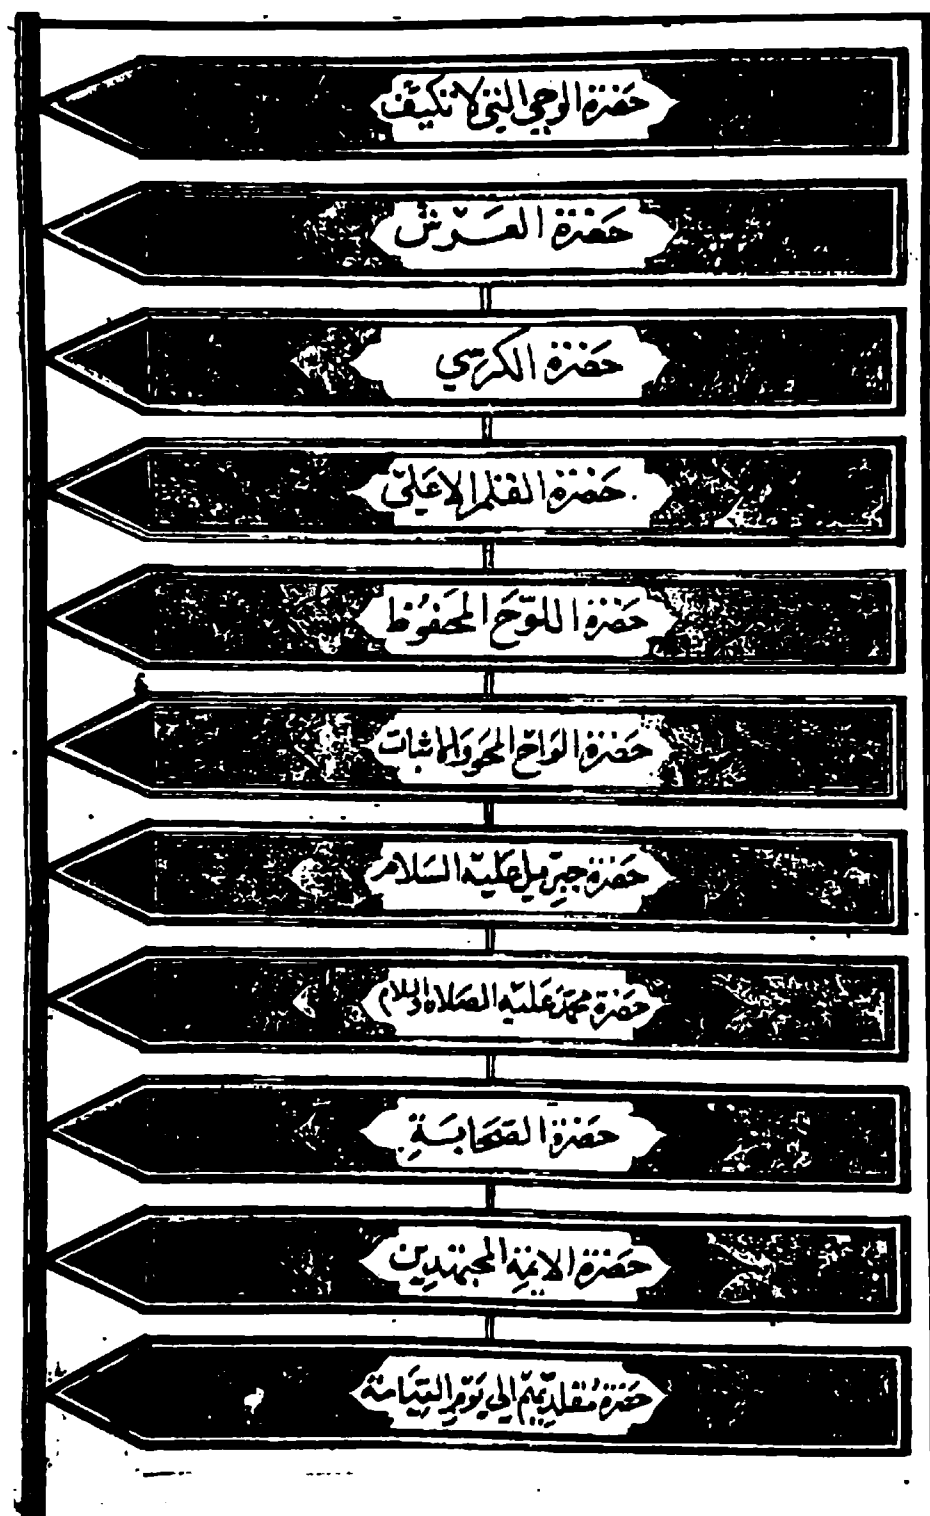 حَضْرَة الوَحي التي لا تكيف
حَضْرَة العَرْش
حَضْرَة الكرسي
حَضْرَة القلم الاعلىٰ
حَضْرَة اللوح المحفوظ
حَضْرَة الواح المحو والاثبات
حَضْرَة جبريل عَليه السَلام
حَضْرَة محمد عَليه الصَلاة والسلام
حَضْرَة الصَحابَة
حَضْرَة الائمة المجتهدين
حَضْرَة مُقلديهم الي يَوم القيامة